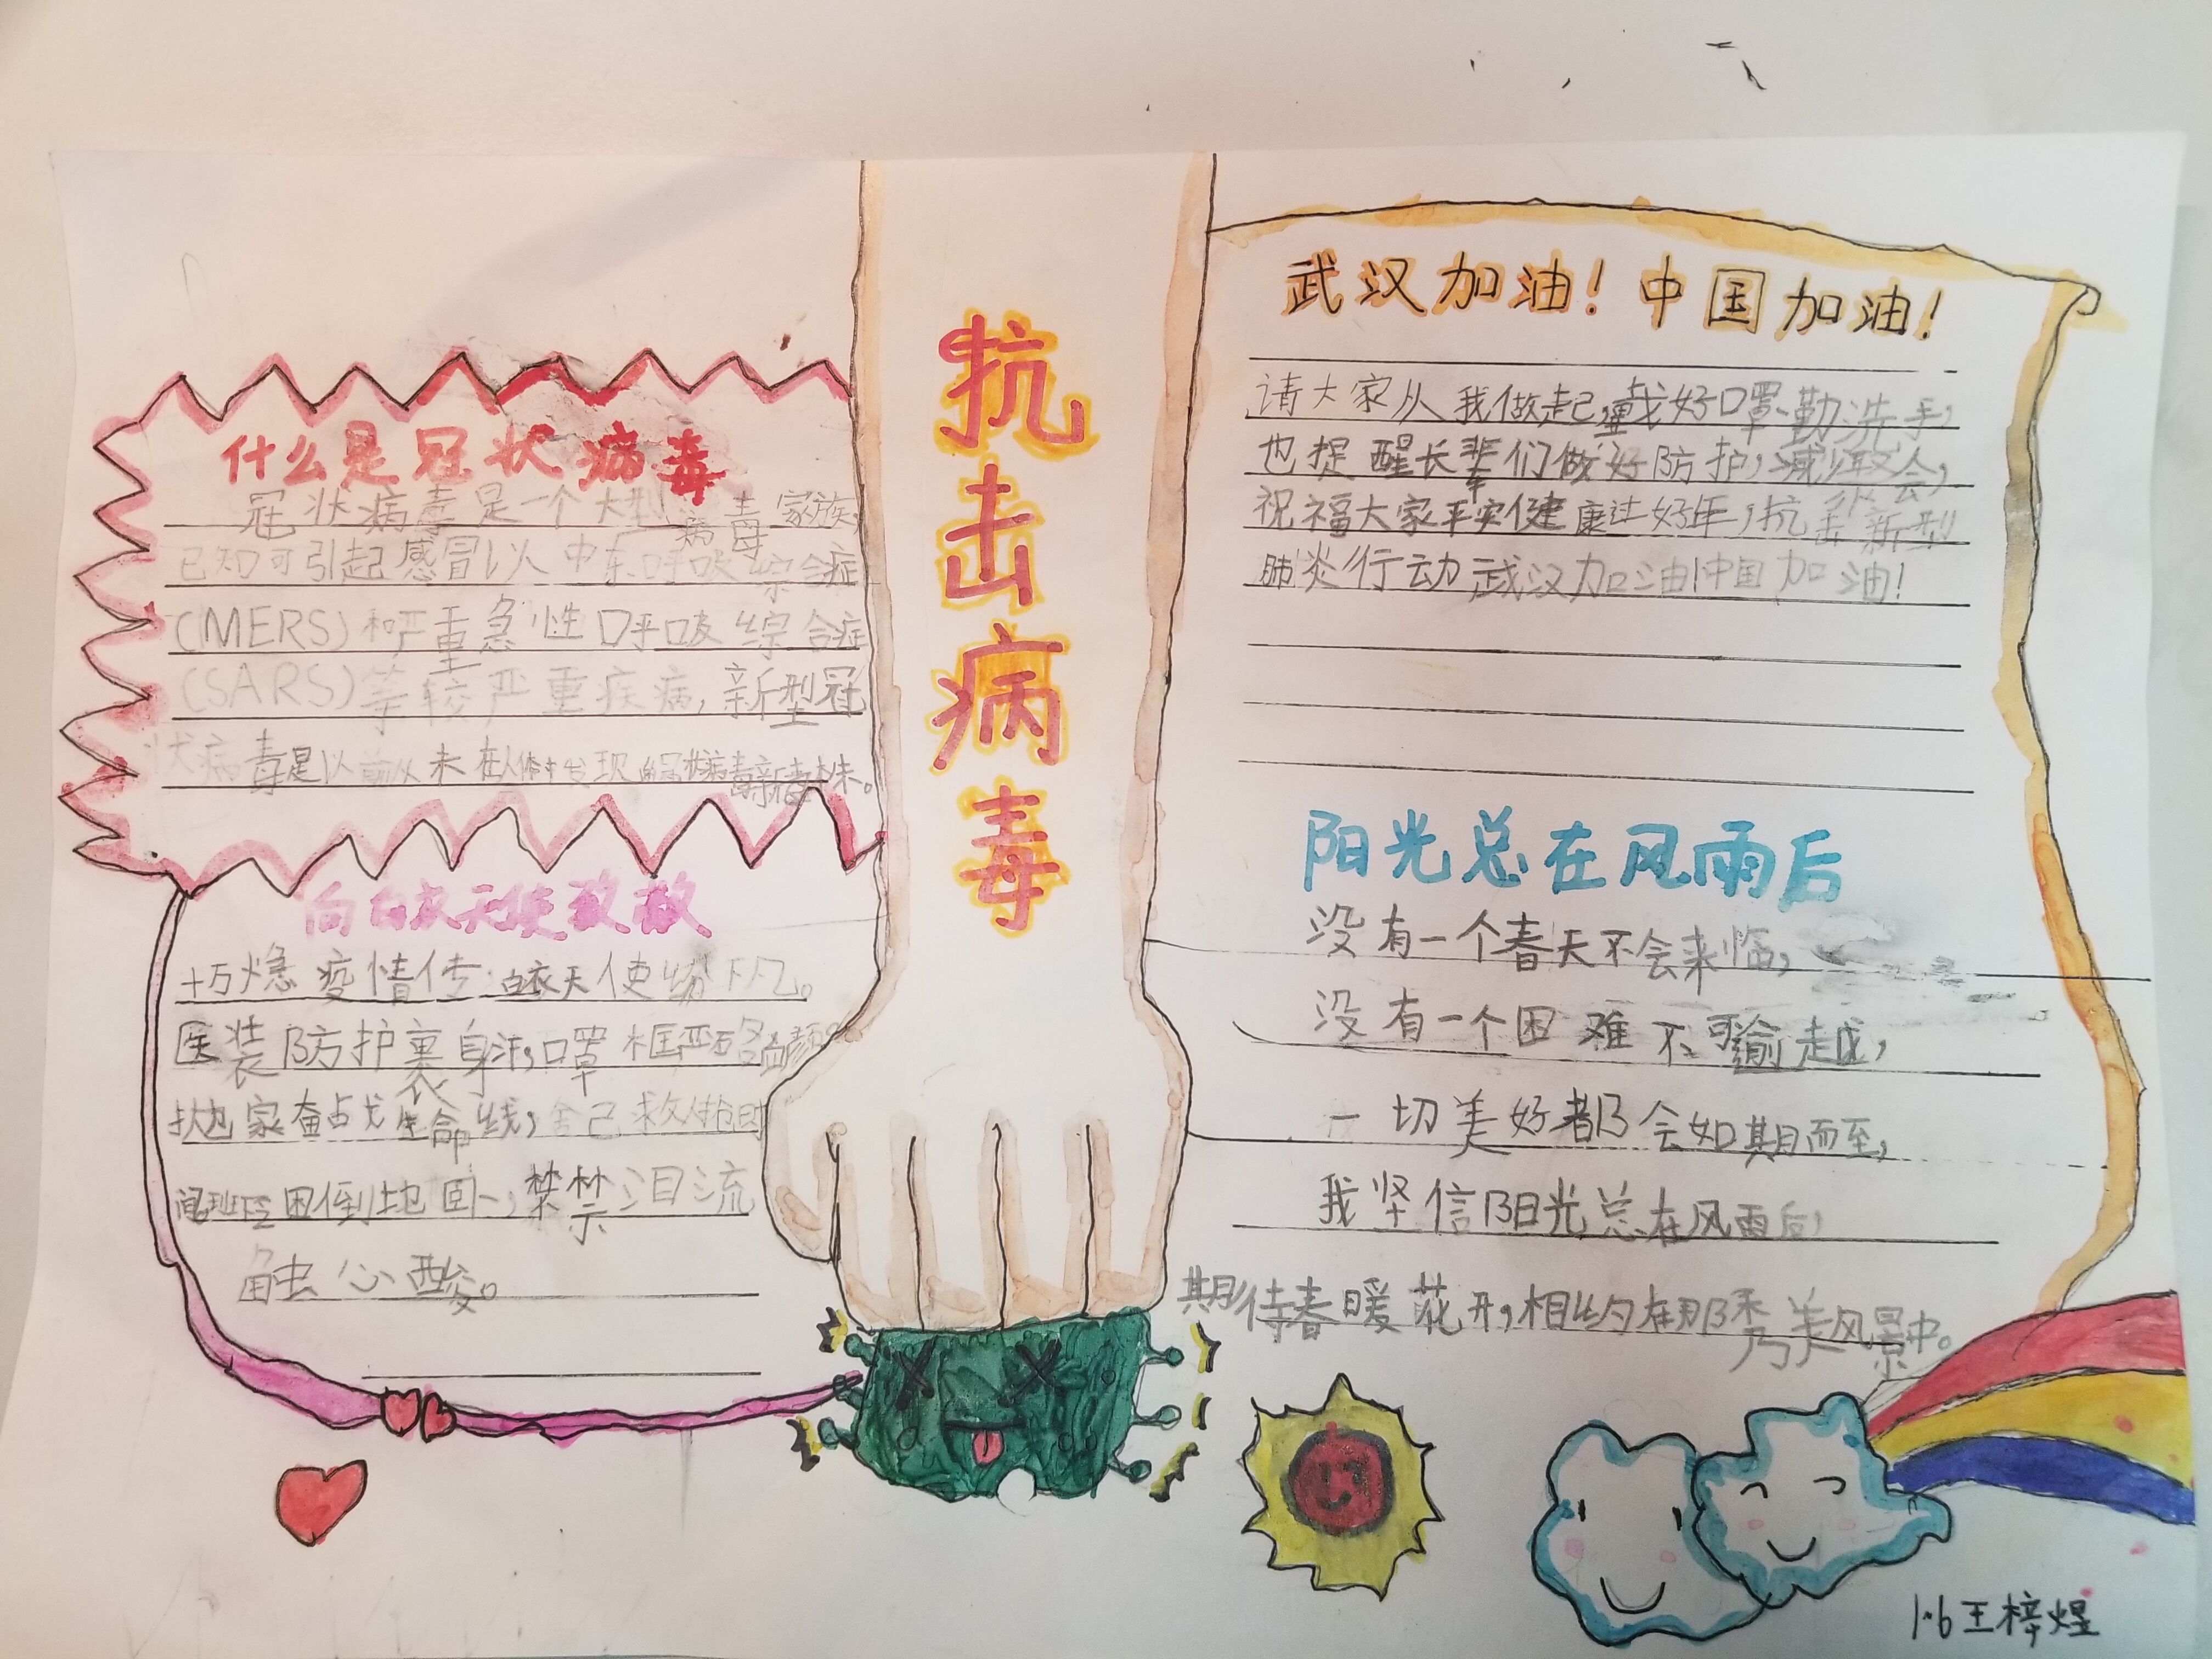 抗击病毒
什么是冠状病毒
冠状病毒是一个大型病毒家族,
已知可引起感冒以中东呼吸综合症
(MERS)和严重急性呼吸综合症
(SARS)等较严重疾病,新型冠
状病毒是以前从未在人体中发现的冠状病毒新毒株。
向白衣天使致敬
十万火急疫情传:白衣天使纷下凡。
医装防护裹身消,口罩框严
抛家奋战生命线,舍己救人抢时
间班困倒地回一,禁禁泪流
触心酸。
武汉加油!中国加油!
请大家从我做起,戴好口罩、勤洗手,
也提醒长辈们做好防护,减少聚会,
祝福大家平安健康过好年,抗击新型
肺炎行动武汉加油!中国加油!
阳光总在风雨后
没有一个春天不会来临,
没有一个困难不可逾越,
一切美好都会如期而至,
我坚信阳光总在风雨后,
期待春暖花开,相约在那秀美风景中。
1.6王梓煜